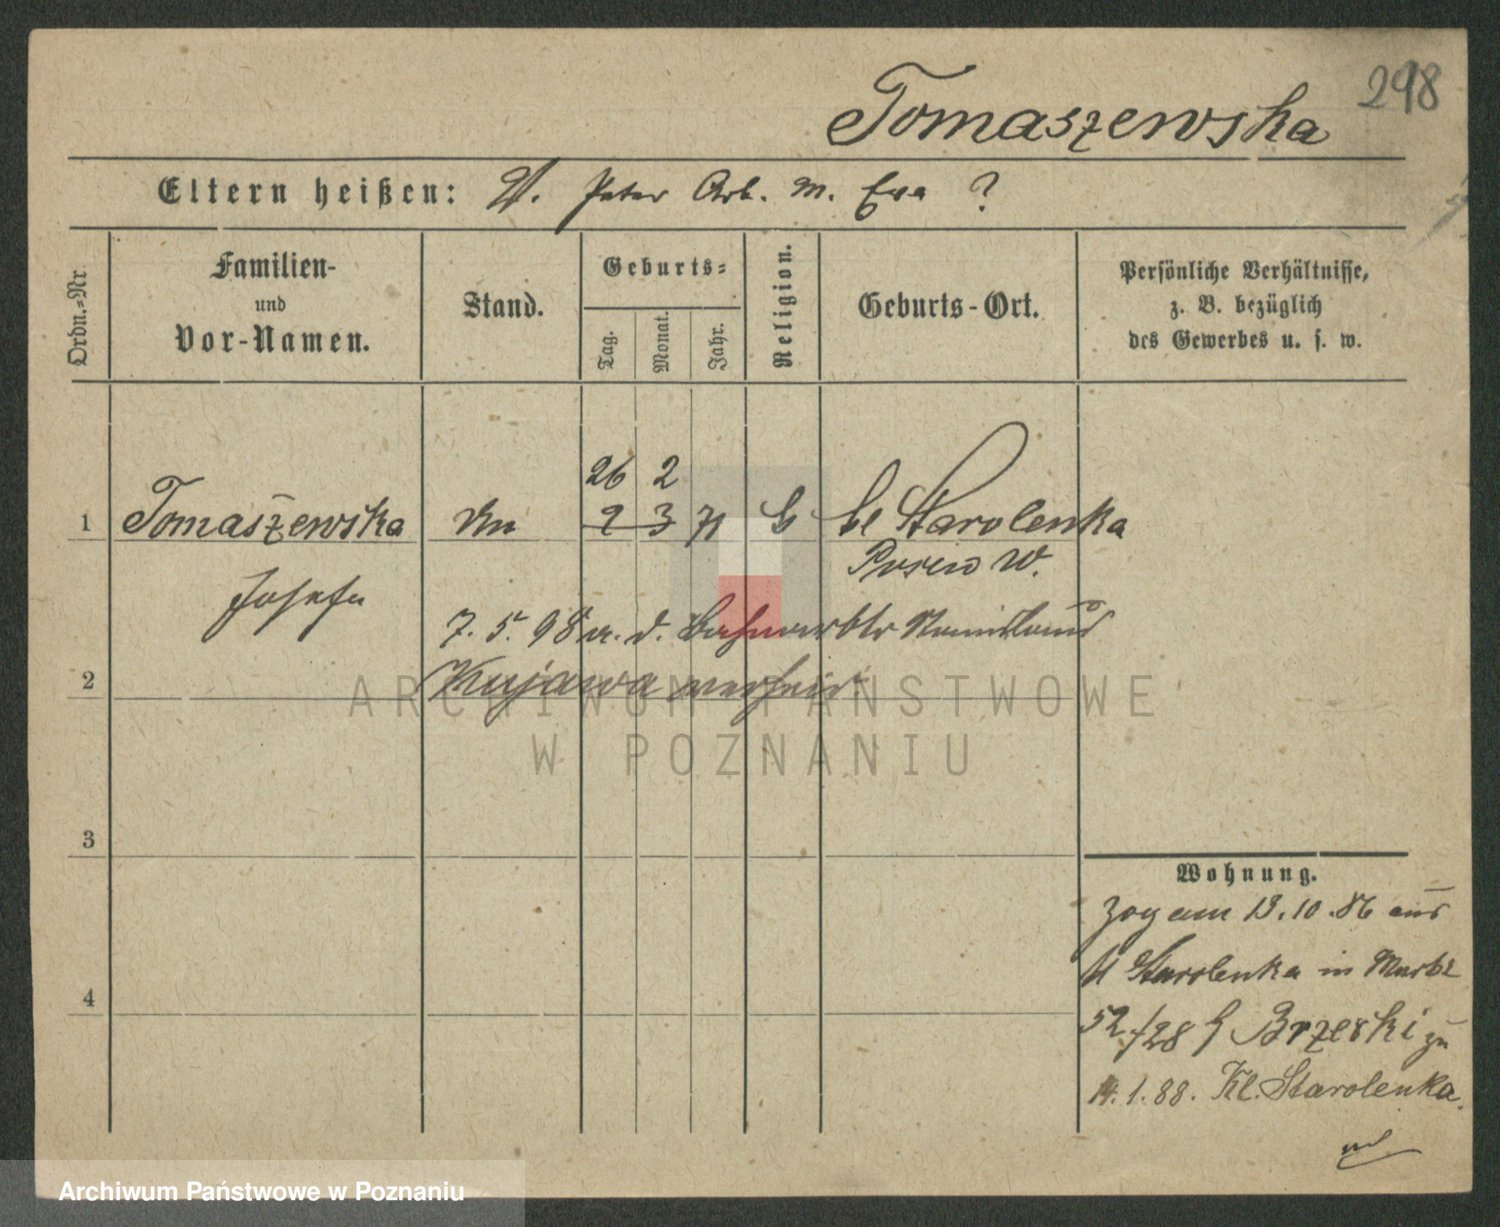 298
Tomaszewska
Eltern heißen: V. Peter Arb. M. Eva ?
Ordn.-Nr.
Familien-
und
Vor-Namen.
Stand.
Geburts-
Tag.
Monat.
Jahr.
Religion.
Geburts-Ort.
Persönliche Verhältnisse,
z. B. bezüglich
des Gewerbes u. s. w.
26 2
1 Tomaszewska 2 3 71 Starolenka
Posen W.
Josefa
7. 5. 98 a. d.
2 Kujawa verheir
ARCHIWUM PAŃSTWOWE
W POZNANIU
3
Wohnung.
zog am 13.10.86 aus
Kl Starolenka in
4
52/28 Brzeski zu
14.1.88. Kl. Starolenka.
Archiwum Państwowe w Poznaniu